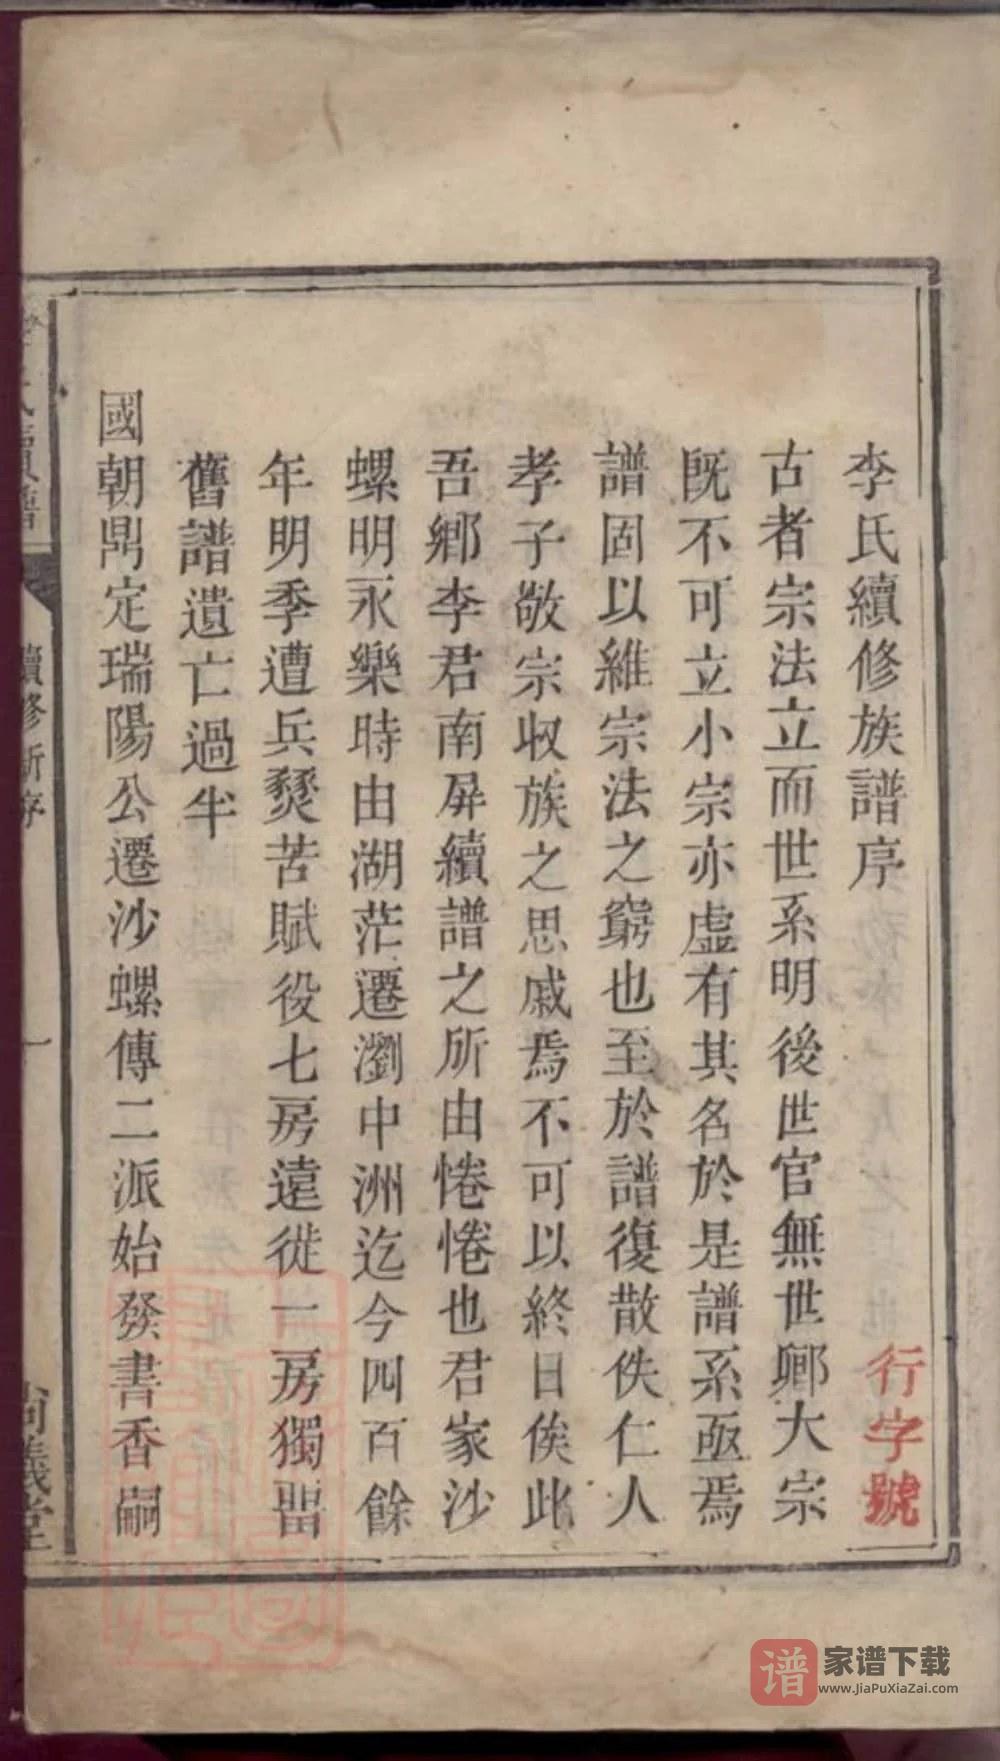 李氏續修族譜序
行字號
古者宗法立而世系明後世官無世卿大宗
既不可立小宗亦虛有其名於是譜系亟焉
譜固以維宗法之窮也至於譜復散佚仁人
孝子敬宗收族之思戚焉不可以終日俟此
吾鄉李君南屏續譜之所由惓惓也君家沙
螺明永樂時由湖茫遷瀏中洲迄今四百餘
年明季遭兵燹苦賦役七房遠徙一房獨留
舊譜遺亡過半
國朝鼎定瑞陽公遷沙螺傳二派始發書香嗣
氏續譜
續修新序
一
尚義堂
谱 家谱下载
www.JiaPuXiaZai.com